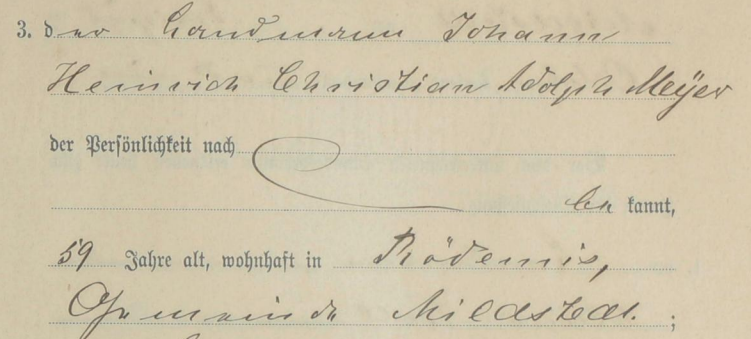 3. der Landmann Johann
Heinrich Christian Adolph Meÿer
der Persönlichkeit nach
be kannt,
59 Jahre alt, wohnhaft in Rödemis,
Gemeinde Mildstedt. ;